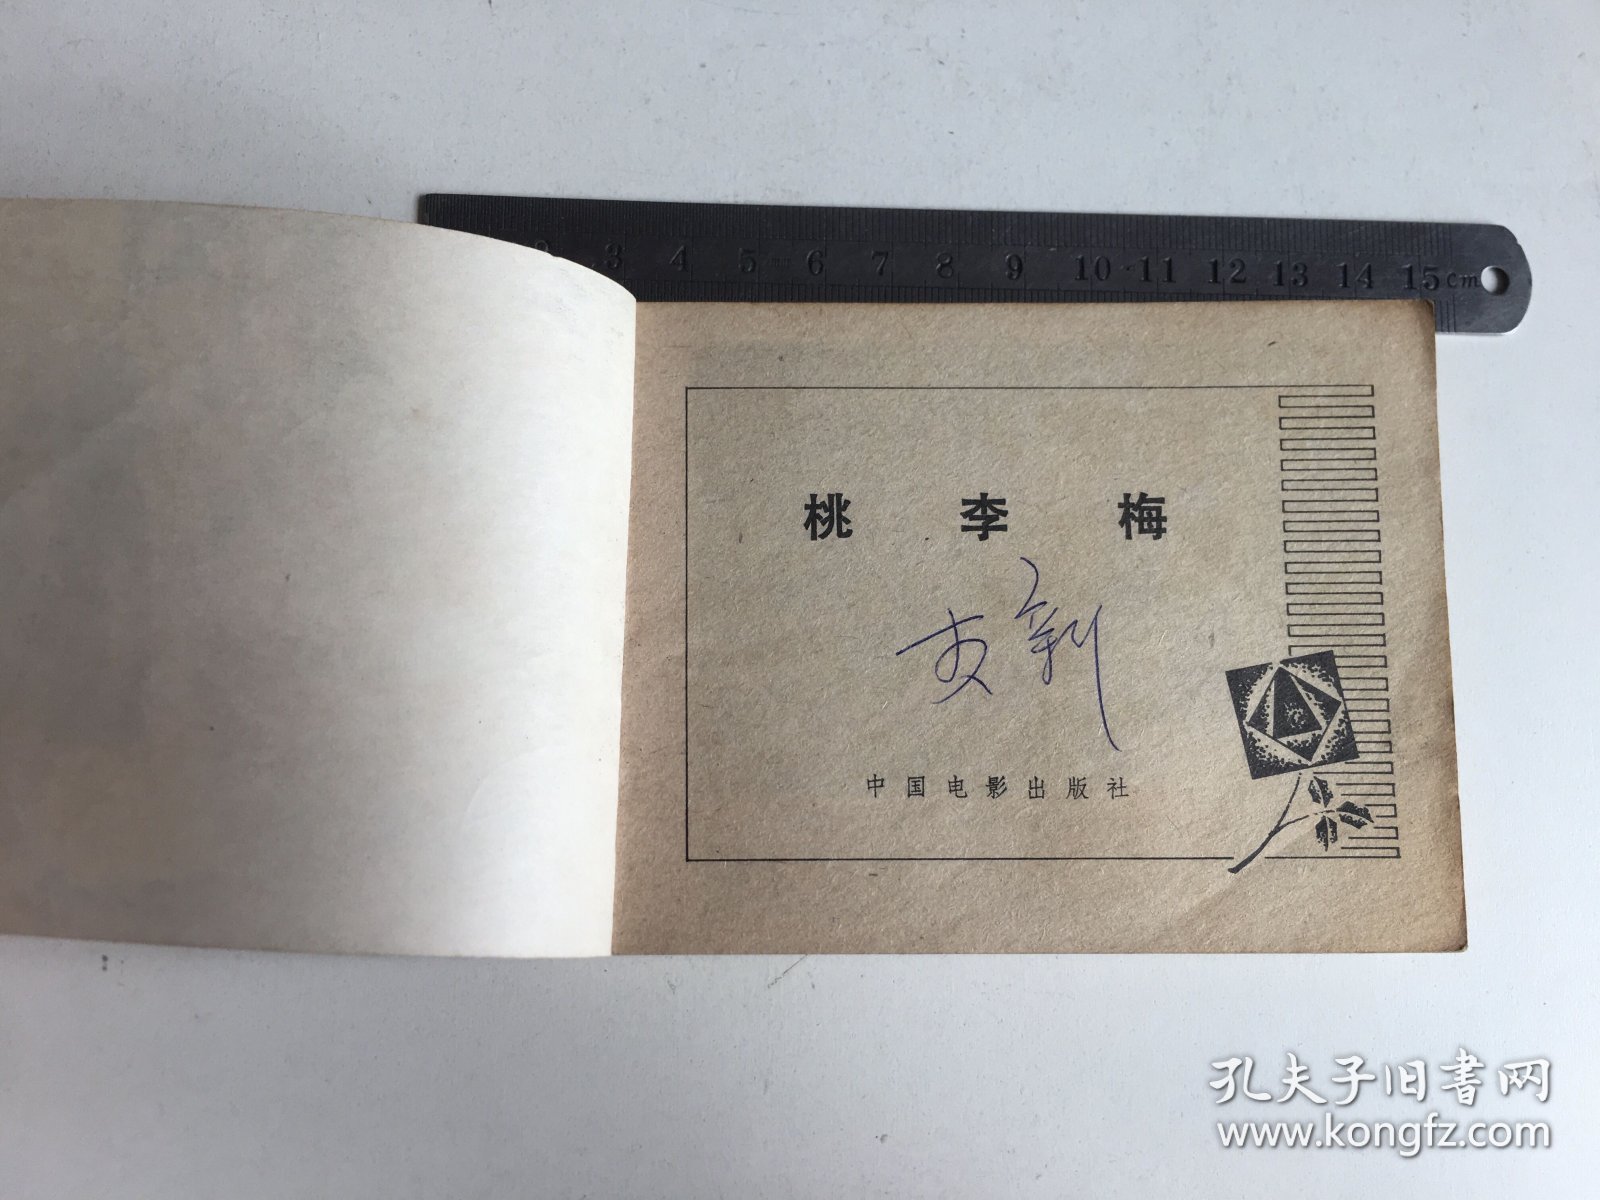 2 3 4 5 mm 6 7 8 9 10 11 12 13 14 15cm
桃李梅
中国电影出版社
孔夫子旧书网
www.kongfz.com